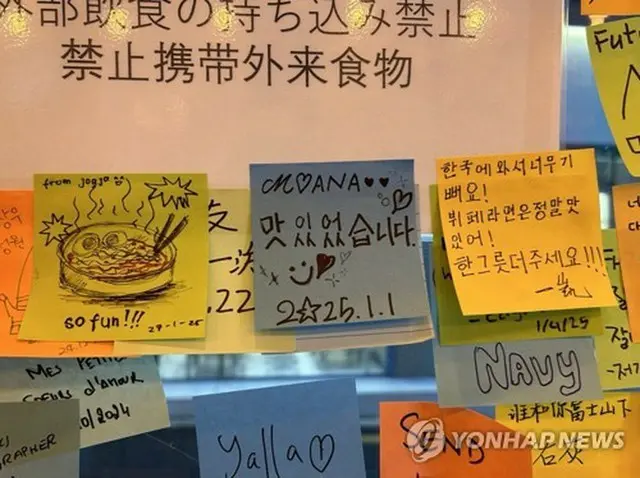 外部飲食の持ち込み禁止
禁止携带外来食物
Futu
from jogja
so fun!!!
27-1-25
MOANA
맛있었습니다.
2☆25.1.1
한국에 와서 너무 기
뻐요!
뷔페 라면은 정말 맛
있어!
한 그릇 더 주세요!!!
友
一次
.22
1/4/25
잘
MES PETIT
COEURS D'AMOUR
/10/2024
NAVY
谁和你富士山下
RAPHER
yalla
SEND
YONHAP NEWS